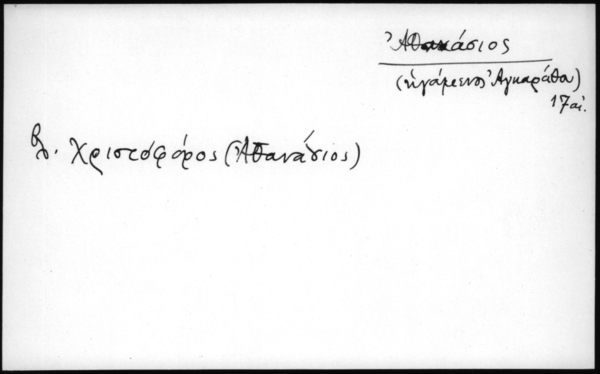 Ἀθανάσιος
(ἡγούμενος Ἀγκαράθου)
17 αἰ.
βλ. Χριστόφορος (Ἀθανάσιος)